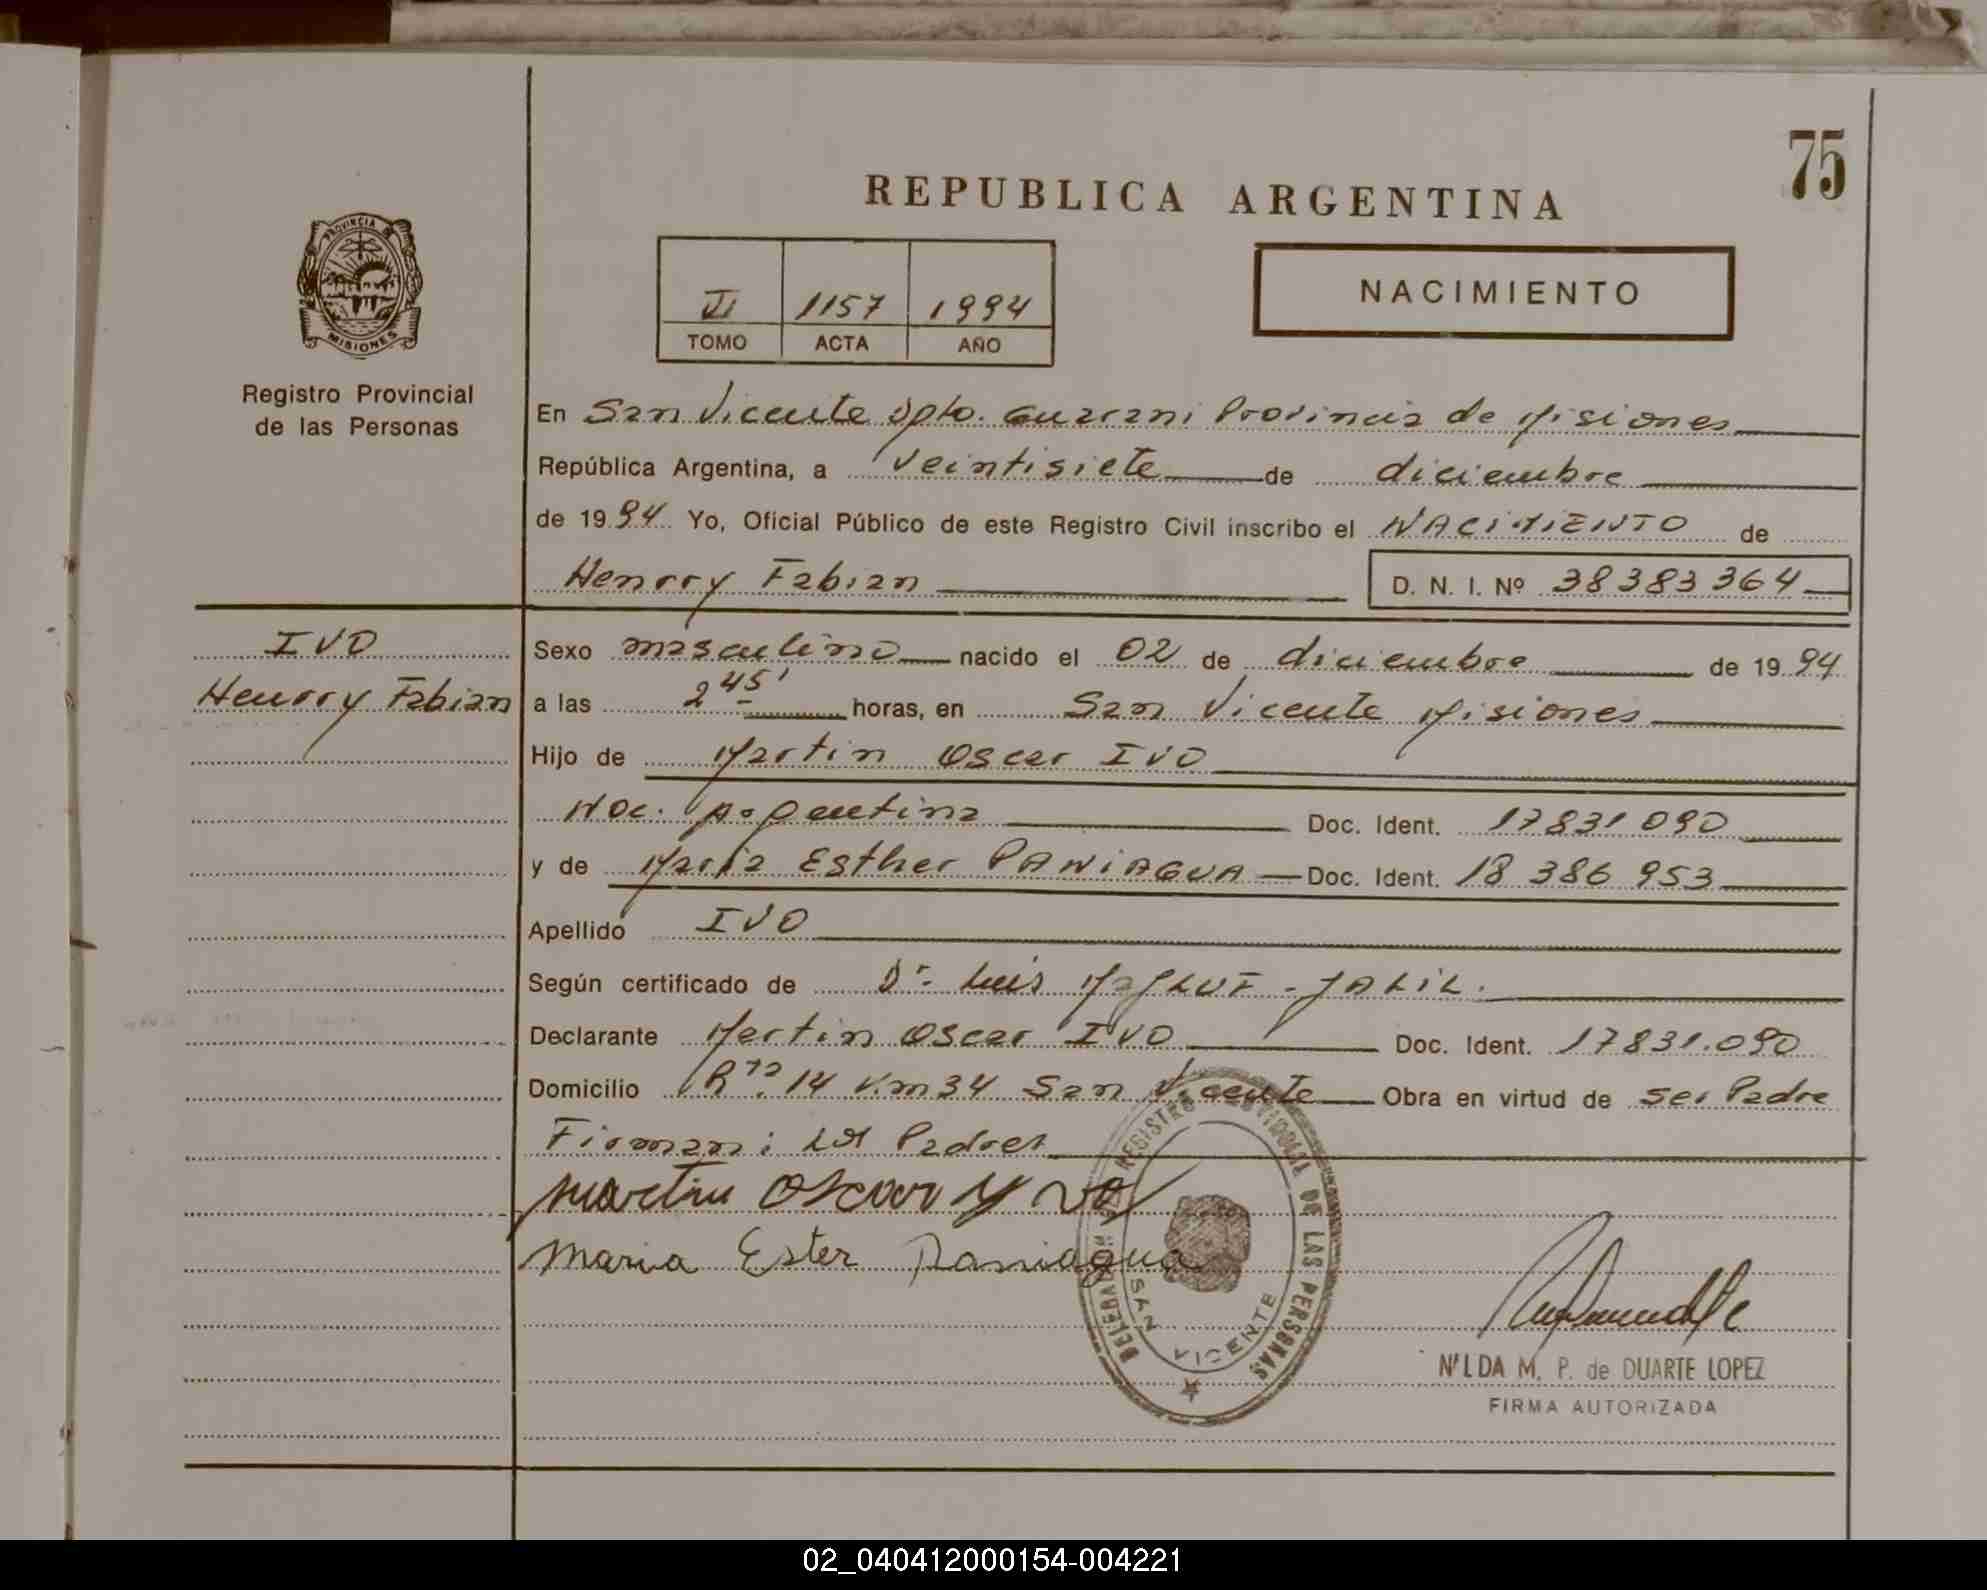 75
REPUBLICA ARGENTINA
PROVINCIA DE
MISIONES
Registro Provincial
de las Personas
VI 1157 1994
TOMO ACTA AÑO
NACIMIENTO
En San Vicente Dpto. Guarani Provincia de Misiones
República Argentina, a veintisiete de diciembre
de 1994 Yo, Oficial Público de este Registro Civil inscribo el NACIMIENTO de
Henrry Fabian D. N. I. Nº 38383364
IVO
Henrry Fabian
Sexo masculino nacido el 02 de diciembre de 1994
a las 2 45' horas, en San Vicente Misiones
Hijo de Martin Oscar IVO
Nac. Argentina Doc. Ident. 17831090
y de Maria Esther PANIAGUA Doc. Ident. 18 386 953
Apellido IVO
Según certificado de Dr. Luis MAJLUF - JALIL.
Declarante Martin Oscar IVO Doc. Ident. 17831.090
Domicilio Rta. 14 Km 34 San Vicente Obra en virtud de ser Padre
Firman: los Padres
Martin Oscar Yvo
Maria Ester Paniagua
REGISTRO PROVINCIAL DE LAS PERSONAS
SAN VICENTE
NILDA M. P. de DUARTE LOPEZ
FIRMA AUTORIZADA
02_040412000154-004221